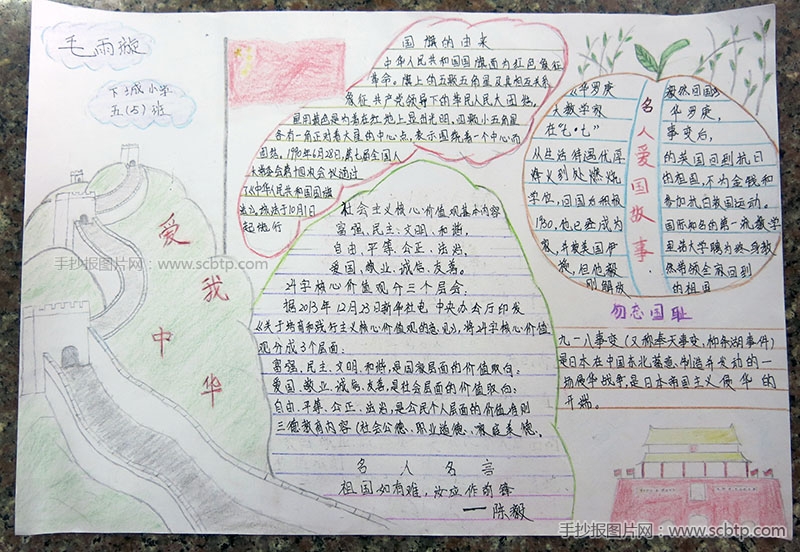 毛雨璇
下城小学
五(5)班
爱
我
中
华
国旗的由来
中华人民共和国国旗旗面为红色象征
革命。旗上的五颗五角星及其相互关系
象征共产党领导下的革民人民大团结。
星用黄色是为着在红地上显出光明,四颗小五角星
各有一角正对着大星的中心点,表示围绕着一个中心而
团结。1990年6月28日,第七届全国人
大常委会第十四次会议通过
了《中华人民共和国国旗
法》,该法于10月1日
起施行
社会主义核心价值观基本内容
富强、民主、文明、和谐,
自由、平等、公正、法治,
爱国、敬业、诚信、友善。
24字核心价值观分三个层会:
据2013年12月23日新华社电 中央办会厅印发
《关于培育和践行主义核心价值观的意见》,将24字核心价值
观分成3个层面:
富强、民主、文明、和谐,是国家层面的价值取向;
爱国、敬业、诚信、友善,是社会层面的价值取向;
自由、平等、公正、法治,是公民个人层面的价值有则
三德教育内容(社会公德、职业道德、家庭美德,
名人名言
祖国如有难,汝应作前锋
——陈毅
名人爱国故事
《华罗庚 毅然回国》
大数学家 华罗庚,
在"七·七" 事变后,
从生活待遇优厚 的英国回到抗日
烽火到处燃烧 的祖国,不为金钱和
学位,回国为积极 参加抗日救国运动。
1950,他已经成为 国际知名的第一流数学
家,并被美国伊 里诺大学聘为终身教
授,但他毅 然带领全家回到
刚解放 的祖国
勿忘国耻
九一八事变(又称奉天事变、柳条湖事件)
是日本在中国东北蓄意制造并发动的一
场侵华战争,是日本帝国主义侵华的
开端。
手抄报图片网:www.scbtp.com
手抄报图片网:www.scbtp.com